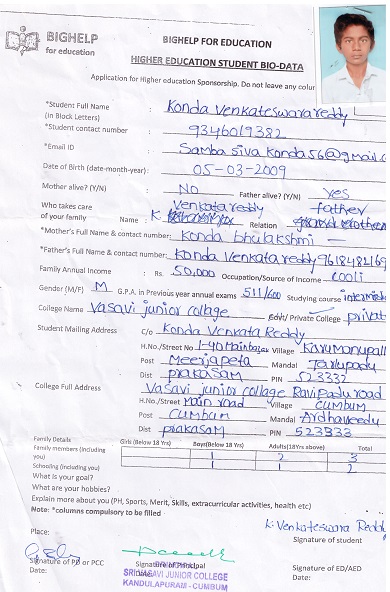 BIGHELP
for education
BIGHELP FOR EDUCATION
HIGHER EDUCATION STUDENT BIO-DATA
Application for Higher education Sponsorship. Do not leave any colum
*Student Full Name : Konda Venkateswarareddy
(in Block Letters)
*Student contact number : 9346019382
*Email ID : Sambasivakonda56@gmail.co
Date of Birth (date-month-year): 05-03-2009
Mother alive? (Y/N) : No Father alive? (Y/N) Yes
Who takes care Venkatareddy father
of your family Name : K. Relation
*Mother's Full Name & contact number: Konda bhulakshmi —
*Father's Full Name & contact number: Konda Venkatareddy
Family Annual Income : Rs. 50,000 Occupation/Source of Income cooli
Gender (M/F) M G.P.A. in Previous year annual exams 511/600 Studying course
College Name Vasavi junior collage Govt/ Private College private
Student Mailing Address C/o Konda Venkata Reddy
H.No./Street No 1-40 Mainbajar Village
Post Meerjapeta Mandal Tarlupadu
Dist prakasam PIN 523332
College Full Address Vasavi junior collage Ravipadu road
H.No./Street Main road Village Cumbum
Post Cumbum Mandal Ardhaveedu
Dist prakasam PIN 523333
Family Details Girls (Below 18 Yrs) Boys(Below 18 Yrs) Adults(18Yrs above) Total
Family members (including 1 2 3
you)
Schooling (including you) 1 2
What is your goal?
What are your hobbies?
Explain more about you (PH, Sports, Merit, Skills, extracurricular activities, health etc)
Note: *columns compulsory to be filled
K. Venkateswara Reddy
Place: Signature of student
Signature of PD or PCC Signature of Principal Signature of ED/AED
Date: Date: Date:
SRI VASAVI JUNIOR COLLEGE
KANDULAPURAM - CUMBUM